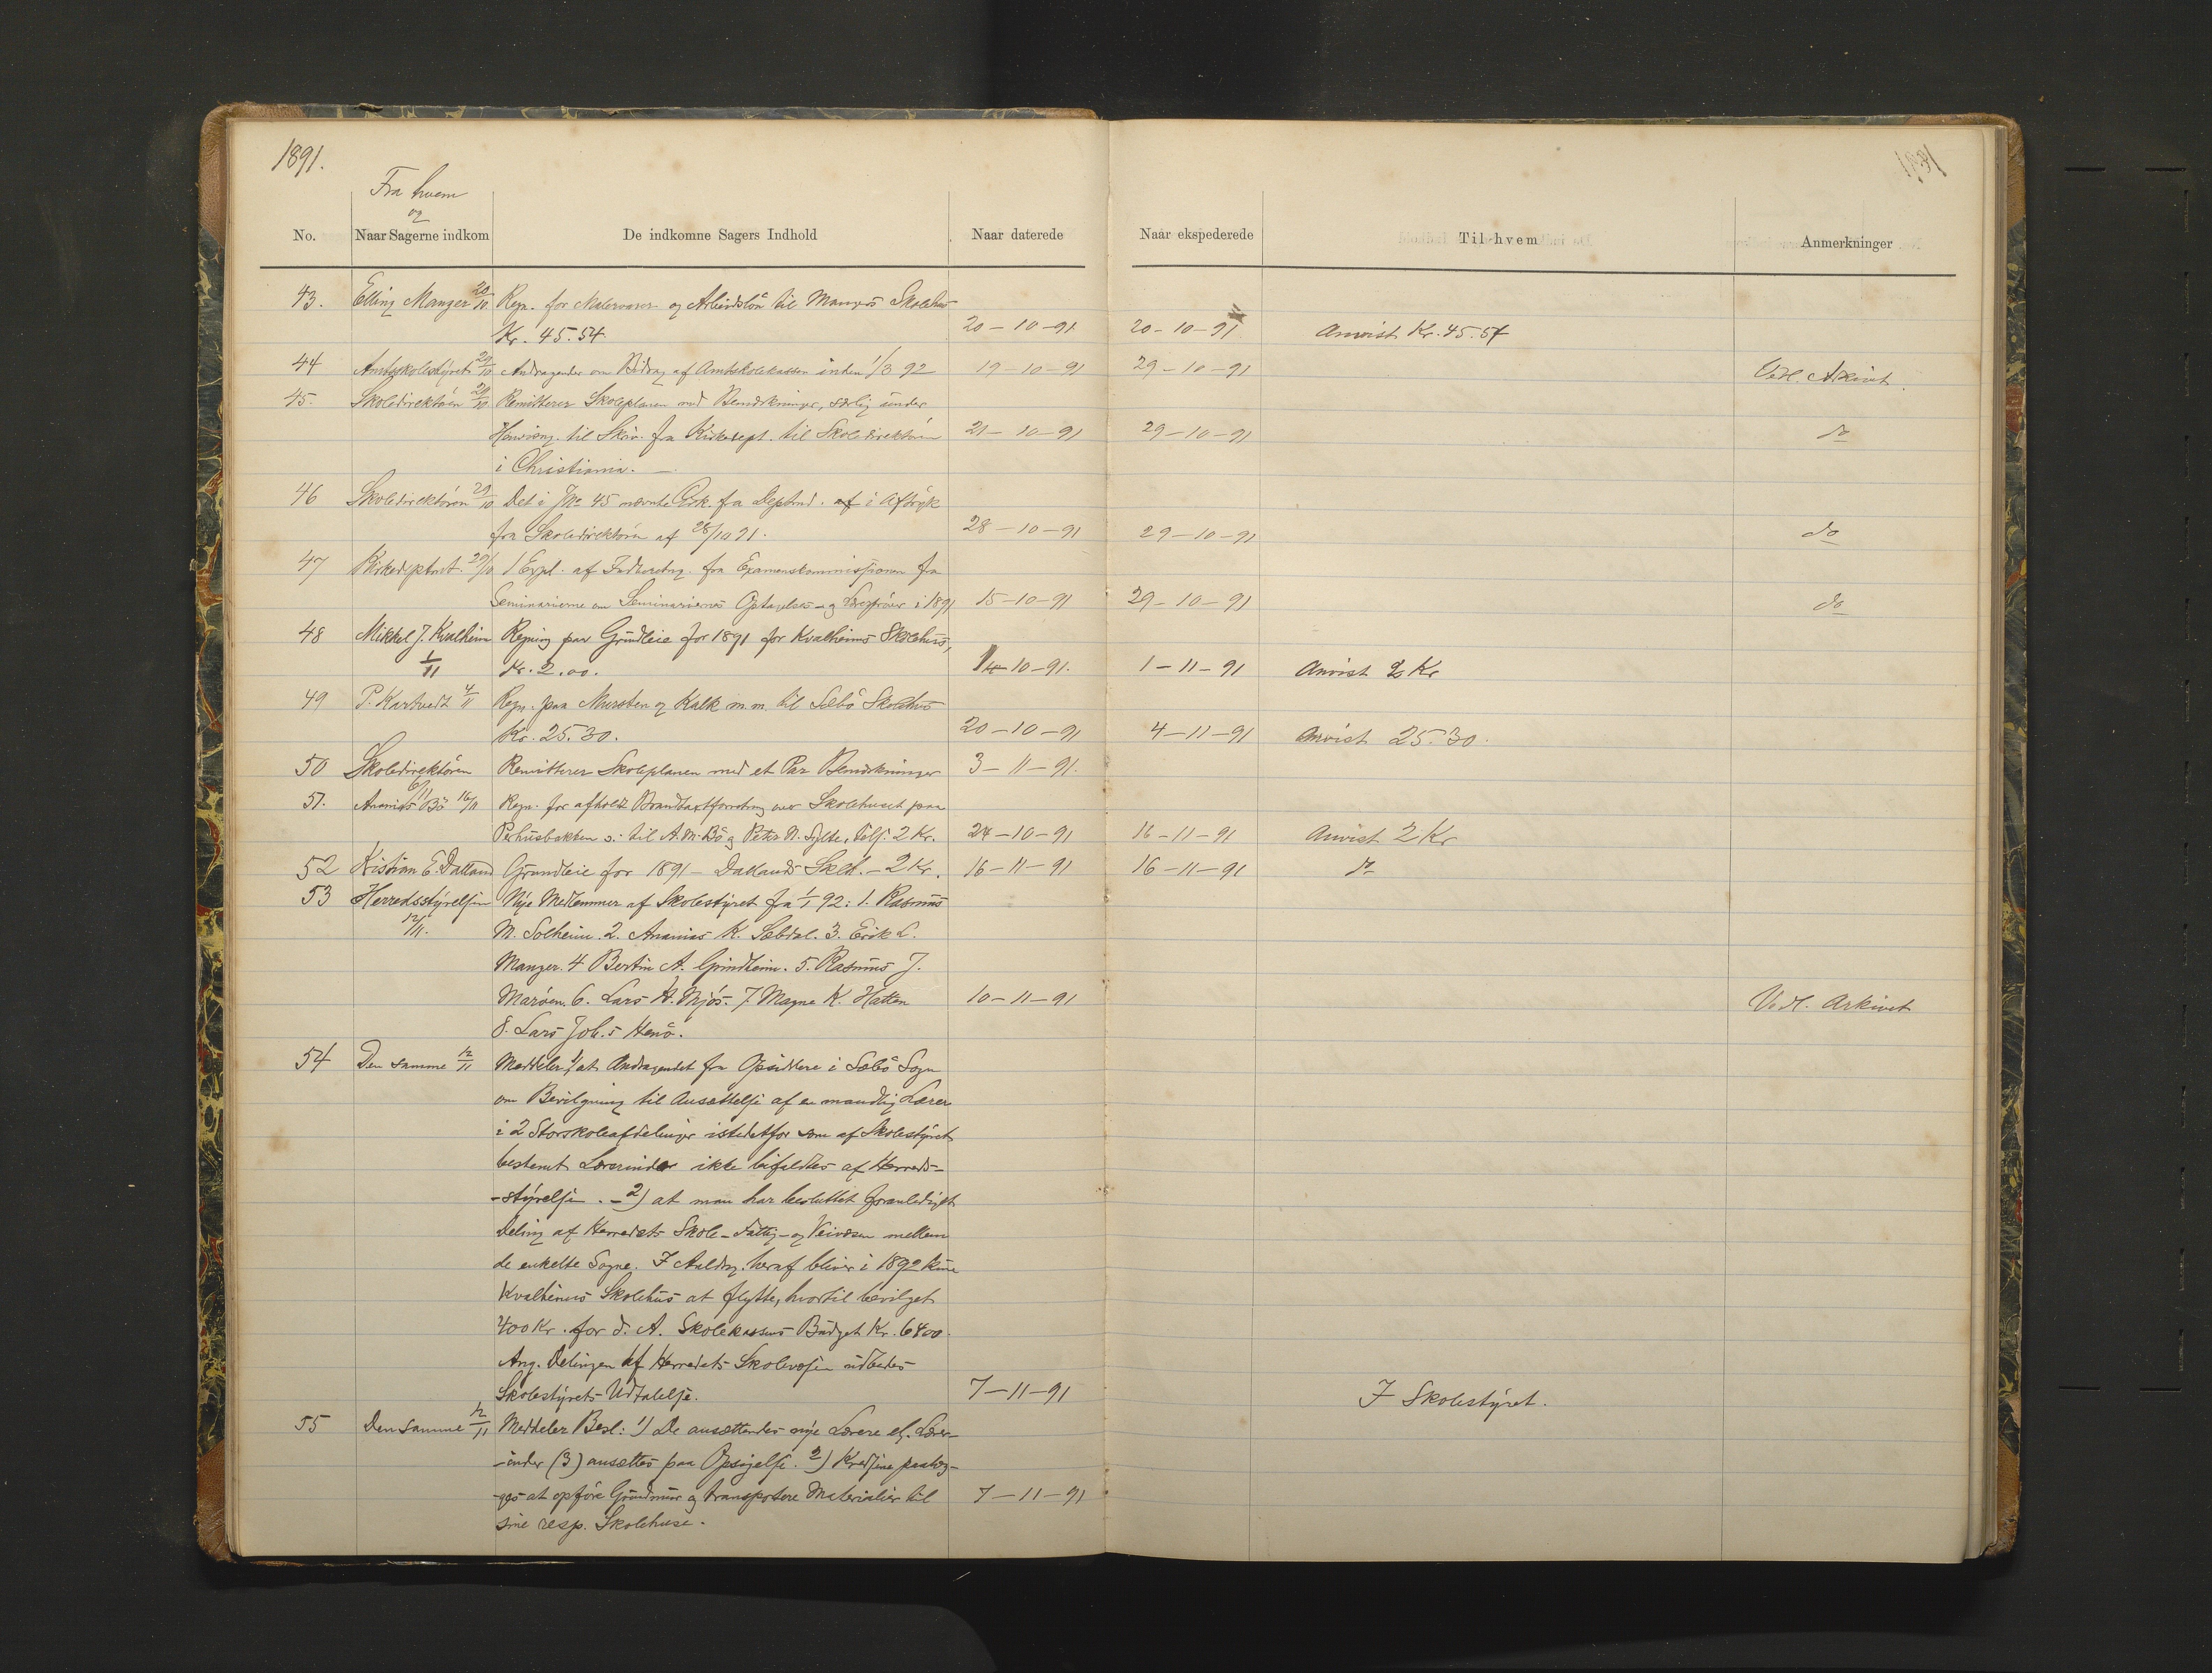 1891.
1891
Fra hvem
og
No. Naar Sagerne indkom De indkomne Sagers Indhold Naar daterede Naar ekspederede Til hvem Anmerkninger
43. Elling Manger 20/10 Regn. for Malervarer og Arbeidsløn til Mangers Skolehus
Kr. 45.54. 20-10-91 20-10-91 Anvist Kr. 45.54
44 Amtsskolestyret 29/10 Andragender om Bidrag af Amtskolekassen inden 1/3 92 19-10-91 29-10-91 Vedl. Arkivet.
45. Skoledirektøren 29/10 Remitterer Skoleplanen med Bemærkninger, særlig under
Henvisng. til Skriv. fra Kirkedept. til Skoledirektøren 21-10-91 29-10-91 do
i Christiania. —
46 Skoledirektøren 29/10 Det i Jno 45 nævnte Cirk. fra Deptmd. af i Aftryk
fra Skoledirektøren af 28/10 91. 28-10-91 29-10-91 do
47 Kirkedeptmt. 29/10 1 Expl. af Indberetng. fra Examenskommissionen fra
Seminarierne om Seminariernes Optagelses- og Lærerprøver i 1891 15-10-91 29-10-91 do
48 Mikkel J. Kvalheim Regning paa Grundleie for 1891 for Kvalheims Skolehus,
1/11 Kr. 2.00. 10-91. 1-11-91 Anvist 2 Kr
49 P. Kartvedt 4/11 Regn. paa Mursten og Kalk m.m. til Sæbø Skolehus
Kr. 25.30. 20-10-91 4-11-91 Anvist 25.30.
50 Skoledirektøren Remitterer Skoleplanen med et Par Bemærkninger 3-11-91.
6/11
51. Ananias Bø 16/11 Regn. for afholdt Brandtaxtforretng over Skolehuset paa
Perhusbakken s: til A. M. Bø og Peter N. Sylte, tils: 2 Kr. 24-10-91 16-11-91 Anvist 2 Kr
52 Kristian E. Dalland Grundleie for 1891 - Dallands Sklh. - 2 Kr. 16-11-91 16-11-91 do
53 Herredsstyrelsen Nye Medlemmer af Skolestyret fra 1/1 92: 1. Rasmus
12/11. M. Solheim. 2. Ananias K. Sæbdal. 3. Erik L.
Manger. 4 Bertin A. Grindheim. 5. Rasmus J.
Marøen. 6. Lars A. Mjøs. 7 Magne K. Hatten 10-11-91 Vedl. Arkivet
8. Lars Joh.s Henø.
54 Den samme 12/11 Meddeler 1) at Andragendet fra Opsiddere i Sæbø Sogn
om Bevilgning til Ansættelse af en mandlig Lærer
i 2 Storskoleafdelinger istedetfor som af Skolestyret
bestemt Lærerinder ikke bifaldtes af Herreds-
-styrelsen. - 2) at man har besluttet foranlediget
Deling af Herredets Skole- Fattig- og Veivæsen mellem
de enkelte Sogne. I Anledng. heraf bliver i 1892 kun
Kvalheims Skolehus at flytte, hvortil bevilget
400 Kr. for d. A. Skolekassens Budget Kr. 6400.
Ang. Delingen af Herredets Skolevæsen udbedes
Skolestyrets Udtalelse. 7-11-91 I Skolestyret.
55 Den samme 12/11 Meddeler Besl: 1) De ansættendes nye Lærere el. Lærer-
-inder (3) ansættes paa Opsigelse. 2) Kredsene paalæg-
-ges at opføre Grundmur og transportere Materialier til 7-11-91
sine resp. Skolehuse.